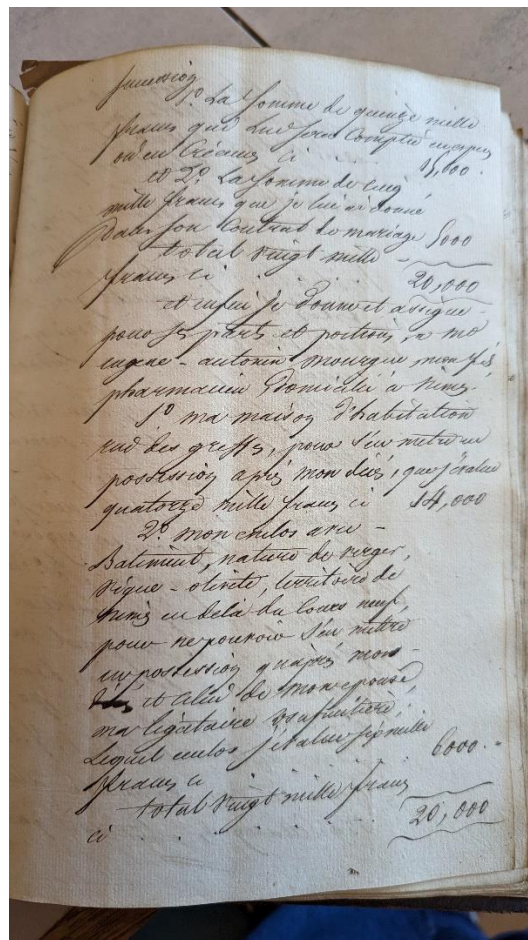 succession
1º La somme de quinze mille
francs qui lui sera comptée en espèces
ou en créances ci 15,000.
et 2º La somme de cinq
mille francs que je lui ai donné
dans son contrat de mariage 5000
total vingt mille
francs ci 20,000
et enfin je donne et assigne
pour ses parts et portions, a Mr
eugene - antonin mourgue mon fils
pharmacien domicilié à nimes.
1º ma maison d'habitation
rue des greffes, pour s'en mettre en
possession après mon décès, que j'évalue
quatorze mille francs ci 14,000
2º mon enclos avec
Batiment, nature de verger,
vigne - olivette, territoire de
nimes en delà du Cours neuf,
pour ne pouvoir s'en mettre
en possession qu'après mon
et celui de mon epouse,
ma légataire usufruitière,
Lequel enclos j'évalue six mille
francs ci 6000.
total vingt mille francs
ci 20,000